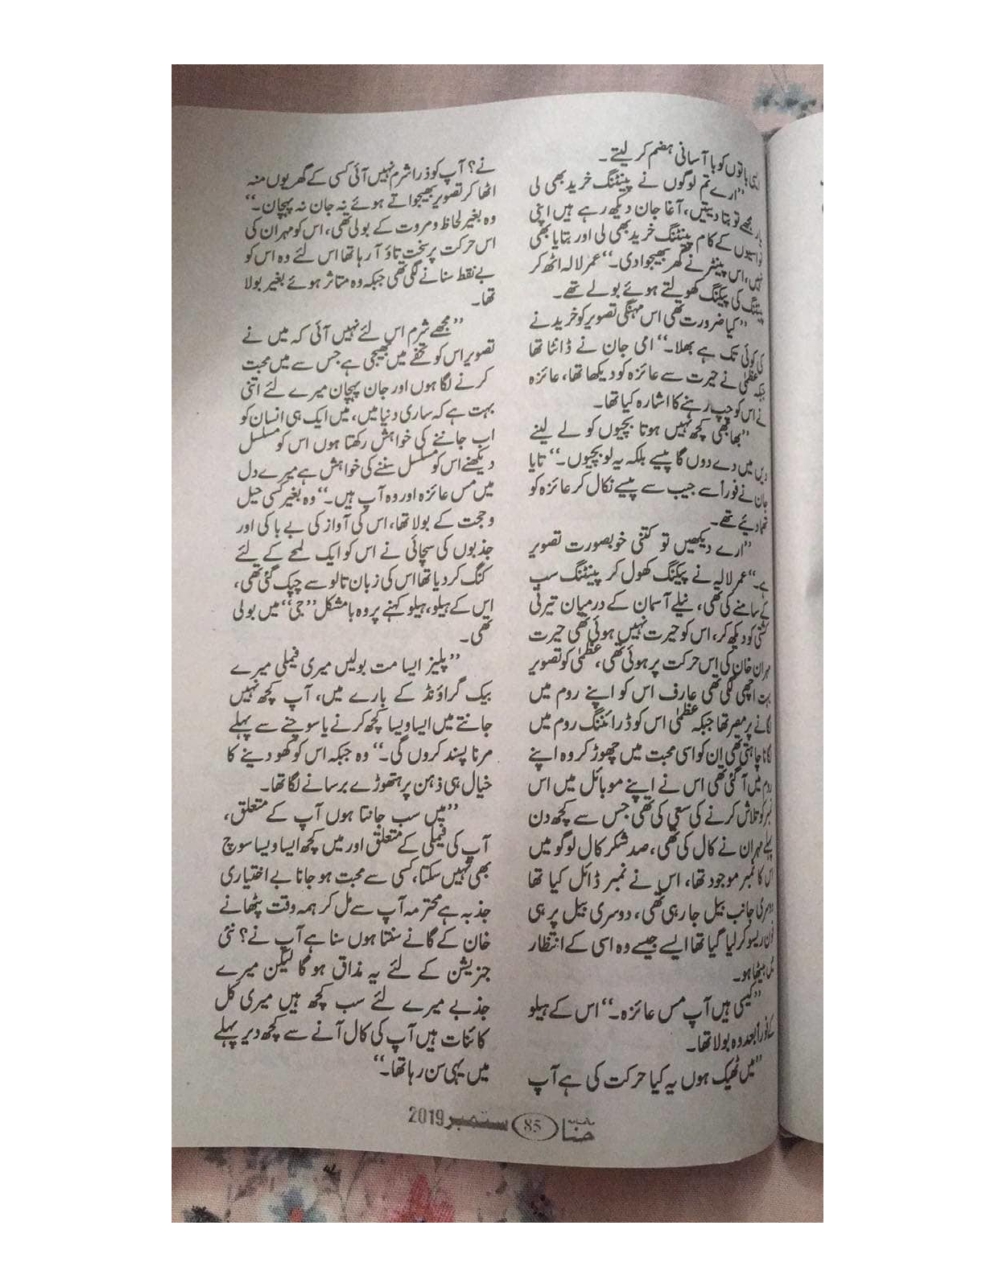 باتوں کو با آسانی ہضم کر لیتے۔
”ارے تم لوگوں نے پینٹنگ خرید بھی لی
مجھے تو بتا دیتیں، آغا جان دیکھ رہے ہیں اپنی
نواسیوں کے کام پینٹنگ خرید بھی لی اور بتایا بھی
نہیں، اس پینٹر نے گھر بھیجوا دی۔“ عمر لالہ اٹھ کر
پینٹنگ کی پیکنگ کھولتے ہوئے بولے تھے۔
”کیا ضرورت تھی اس مہنگی تصویر کو خریدنے
کی کوئی تک ہے بھلا۔“ امی جان نے ڈانٹا تھا
جبکہ عظمیٰ نے حیرت سے عائزہ کو دیکھا تھا، عائزہ
نے اس کو چپ رہنے کا اشارہ کیا تھا۔
”بھابھی کچھ نہیں ہوتا بچیوں کو لے لینے
دیں میں دے دوں گا پیسے بلکہ یہ لو بچیوں۔“ تایا
جان نے فوراً سے جیب سے پیسے نکال کر عائزہ کو
تھما دیئے تھے۔
”ارے دیکھیں تو کتنی خوبصورت تصویر
ہے۔“ عمر لالہ نے پیکنگ کھول کر پینٹنگ سب
کے سامنے کی تھی، نیلے آسمان کے درمیان تیرتی
کشتی کو دیکھ کر، اس کو حیرت نہیں ہوئی تھی حیرت
مہران خان کی اس حرکت پر ہوئی تھی، عظمیٰ کو تصویر
بہت اچھی لگی تھی عارف اس کو اپنے روم میں
لگانے پر مصر تھا جبکہ عظمیٰ اس کو ڈرائننگ روم میں
لگانا چاہتی تھی ان کو اسی محبت میں چھوڑ کر وہ اپنے
روم میں آ گئی تھی اس نے اپنے موبائل میں اس
نمبر کو تلاش کرنے کی سعی کی تھی جس سے کچھ دن
پہلے مہران نے کال کی تھی، صد شکر کال لوگو میں
اس کا نمبر موجود تھا، اس نے نمبر ڈائل کیا تھا
دوسری جانب بیل جا رہی تھی، دوسری بیل پر ہی
فون ریسو کر لیا گیا تھا ایسے جیسے وہ اسی کے انتظار
میں بیٹھا ہو۔
”کیسی ہیں آپ مس عائزہ۔“ اس کے ہیلو
کے فوراً بعد وہ بولا تھا۔
”میں ٹھیک ہوں یہ کیا حرکت کی ہے آپ
نے؟ آپ کو ذرا شرم نہیں آئی کسی کے گھر یوں منہ
اٹھا کر تصویر بھیجواتے ہوئے نہ جان نہ پہچان۔“
وہ بغیر لحاظ و مروت کے بولی تھی، اس کو مہران کی
اس حرکت پر سخت تاؤ آ رہا تھا اس لئے وہ اس کو
بے نقط سنانے لگی تھی جبکہ وہ متاثر ہوئے بغیر بولا
تھا۔
”مجھے شرم اس لئے نہیں آئی کہ میں نے
تصویر اس کو تحفے میں بھیجی ہے جس سے میں محبت
کرنے لگا ہوں اور جان پہچان میرے لئے اتنی
بہت ہے کہ ساری دنیا میں، میں ایک ہی انسان کو
اب جاننے کی خواہش رکھتا ہوں اس کو مسلسل
دیکھنے اس کو مسلسل سننے کی خواہش ہے میرے دل
میں مس عائزہ اور وہ آپ ہیں۔“ وہ بغیر کسی حیل
و حجت کے بولا تھا، اس کی آواز کی بے باکی اور
جذبوں کی سچائی نے اس کو ایک لمحے کے لئے
گنگ کر دیا تھا اس کی زبان تالو سے چپک گئی تھی،
اس کے ہیلو، ہیلو کہنے پر وہ با مشکل ”جی“ میں بولی
تھی۔
”پلیز ایسا مت بولیں میری فیملی میرے
بیک گراؤنڈ کے بارے میں، آپ کچھ نہیں
جانتے میں ایسا ویسا کچھ کرنے یا سوچنے سے پہلے
مرنا پسند کروں گی۔“ وہ جبکہ اس کو کھو دینے کا
خیال ہی ذہن پر ہتھوڑے برسانے لگا تھا۔
”میں سب جانتا ہوں آپ کے متعلق،
آپ کی فیملی کے متعلق اور میں کچھ ایسا ویسا سوچ
بھی نہیں سکتا، کسی سے محبت ہو جانا بے اختیاری
جذبہ ہے محترمہ آپ سے مل کر ہمہ وقت پٹھانے
خان کے گانے سنتا ہوں سنا ہے آپ نے؟ نئی
جنریشن کے لئے یہ مذاق ہو گا لیکن میرے
جذبے میرے لئے سب کچھ ہیں میری کل
کائنات ہیں آپ کی کال آنے سے کچھ دیر پہلے
میں یہی سن رہا تھا۔“
حنا 85 ستمبر 2019